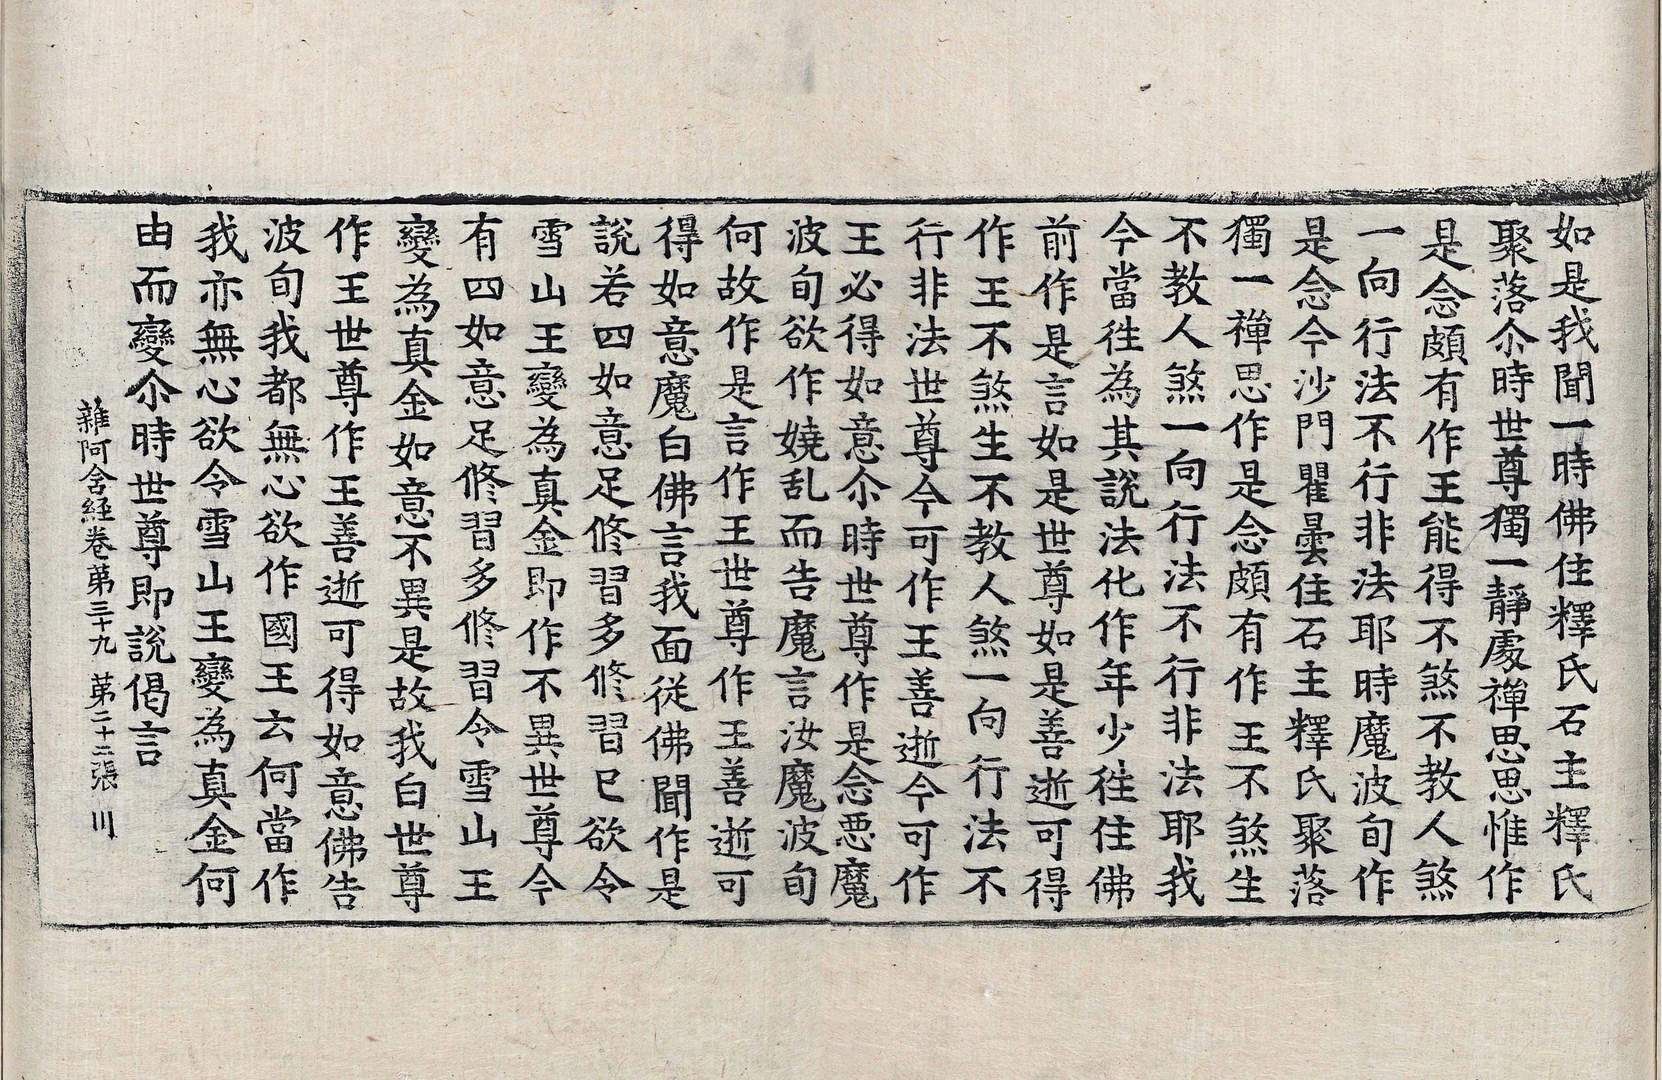 如是我聞一時佛住釋氏石主釋氏
聚落尒時世尊獨一靜處禪思思惟作
是念頗有作王能得不煞不教人煞
一向行法不行非法耶時魔波旬作
是念今沙門瞿曇住石主釋氏聚落
獨一禪思作是念頗有作王不煞生
不教人煞一向行法不行非法耶我
今當徃為其說法化作年少徃住佛
前作是言如是世尊如是善逝可得
作王不煞生不教人煞一向行法不
行非法世尊今可作王善逝今可作
王必得如意尒時世尊作是念惡魔
波旬欲作嬈乱而告魔言汝魔波旬
何故作是言作王世尊作王善逝可
得如意魔白佛言我面從佛聞作是
說若四如意足修習多修習已欲令
雪山王變為真金即作不異世尊今
有四如意足修習多修習令雪山王
變為真金如意不異是故我白世尊
作王世尊作王善逝可得如意佛告
波旬我都無心欲作國王云何當作
我亦無心欲令雪山王變為真金何
由而變尒時世尊即說偈言
雜阿含経卷第三十九 第二十二張 川